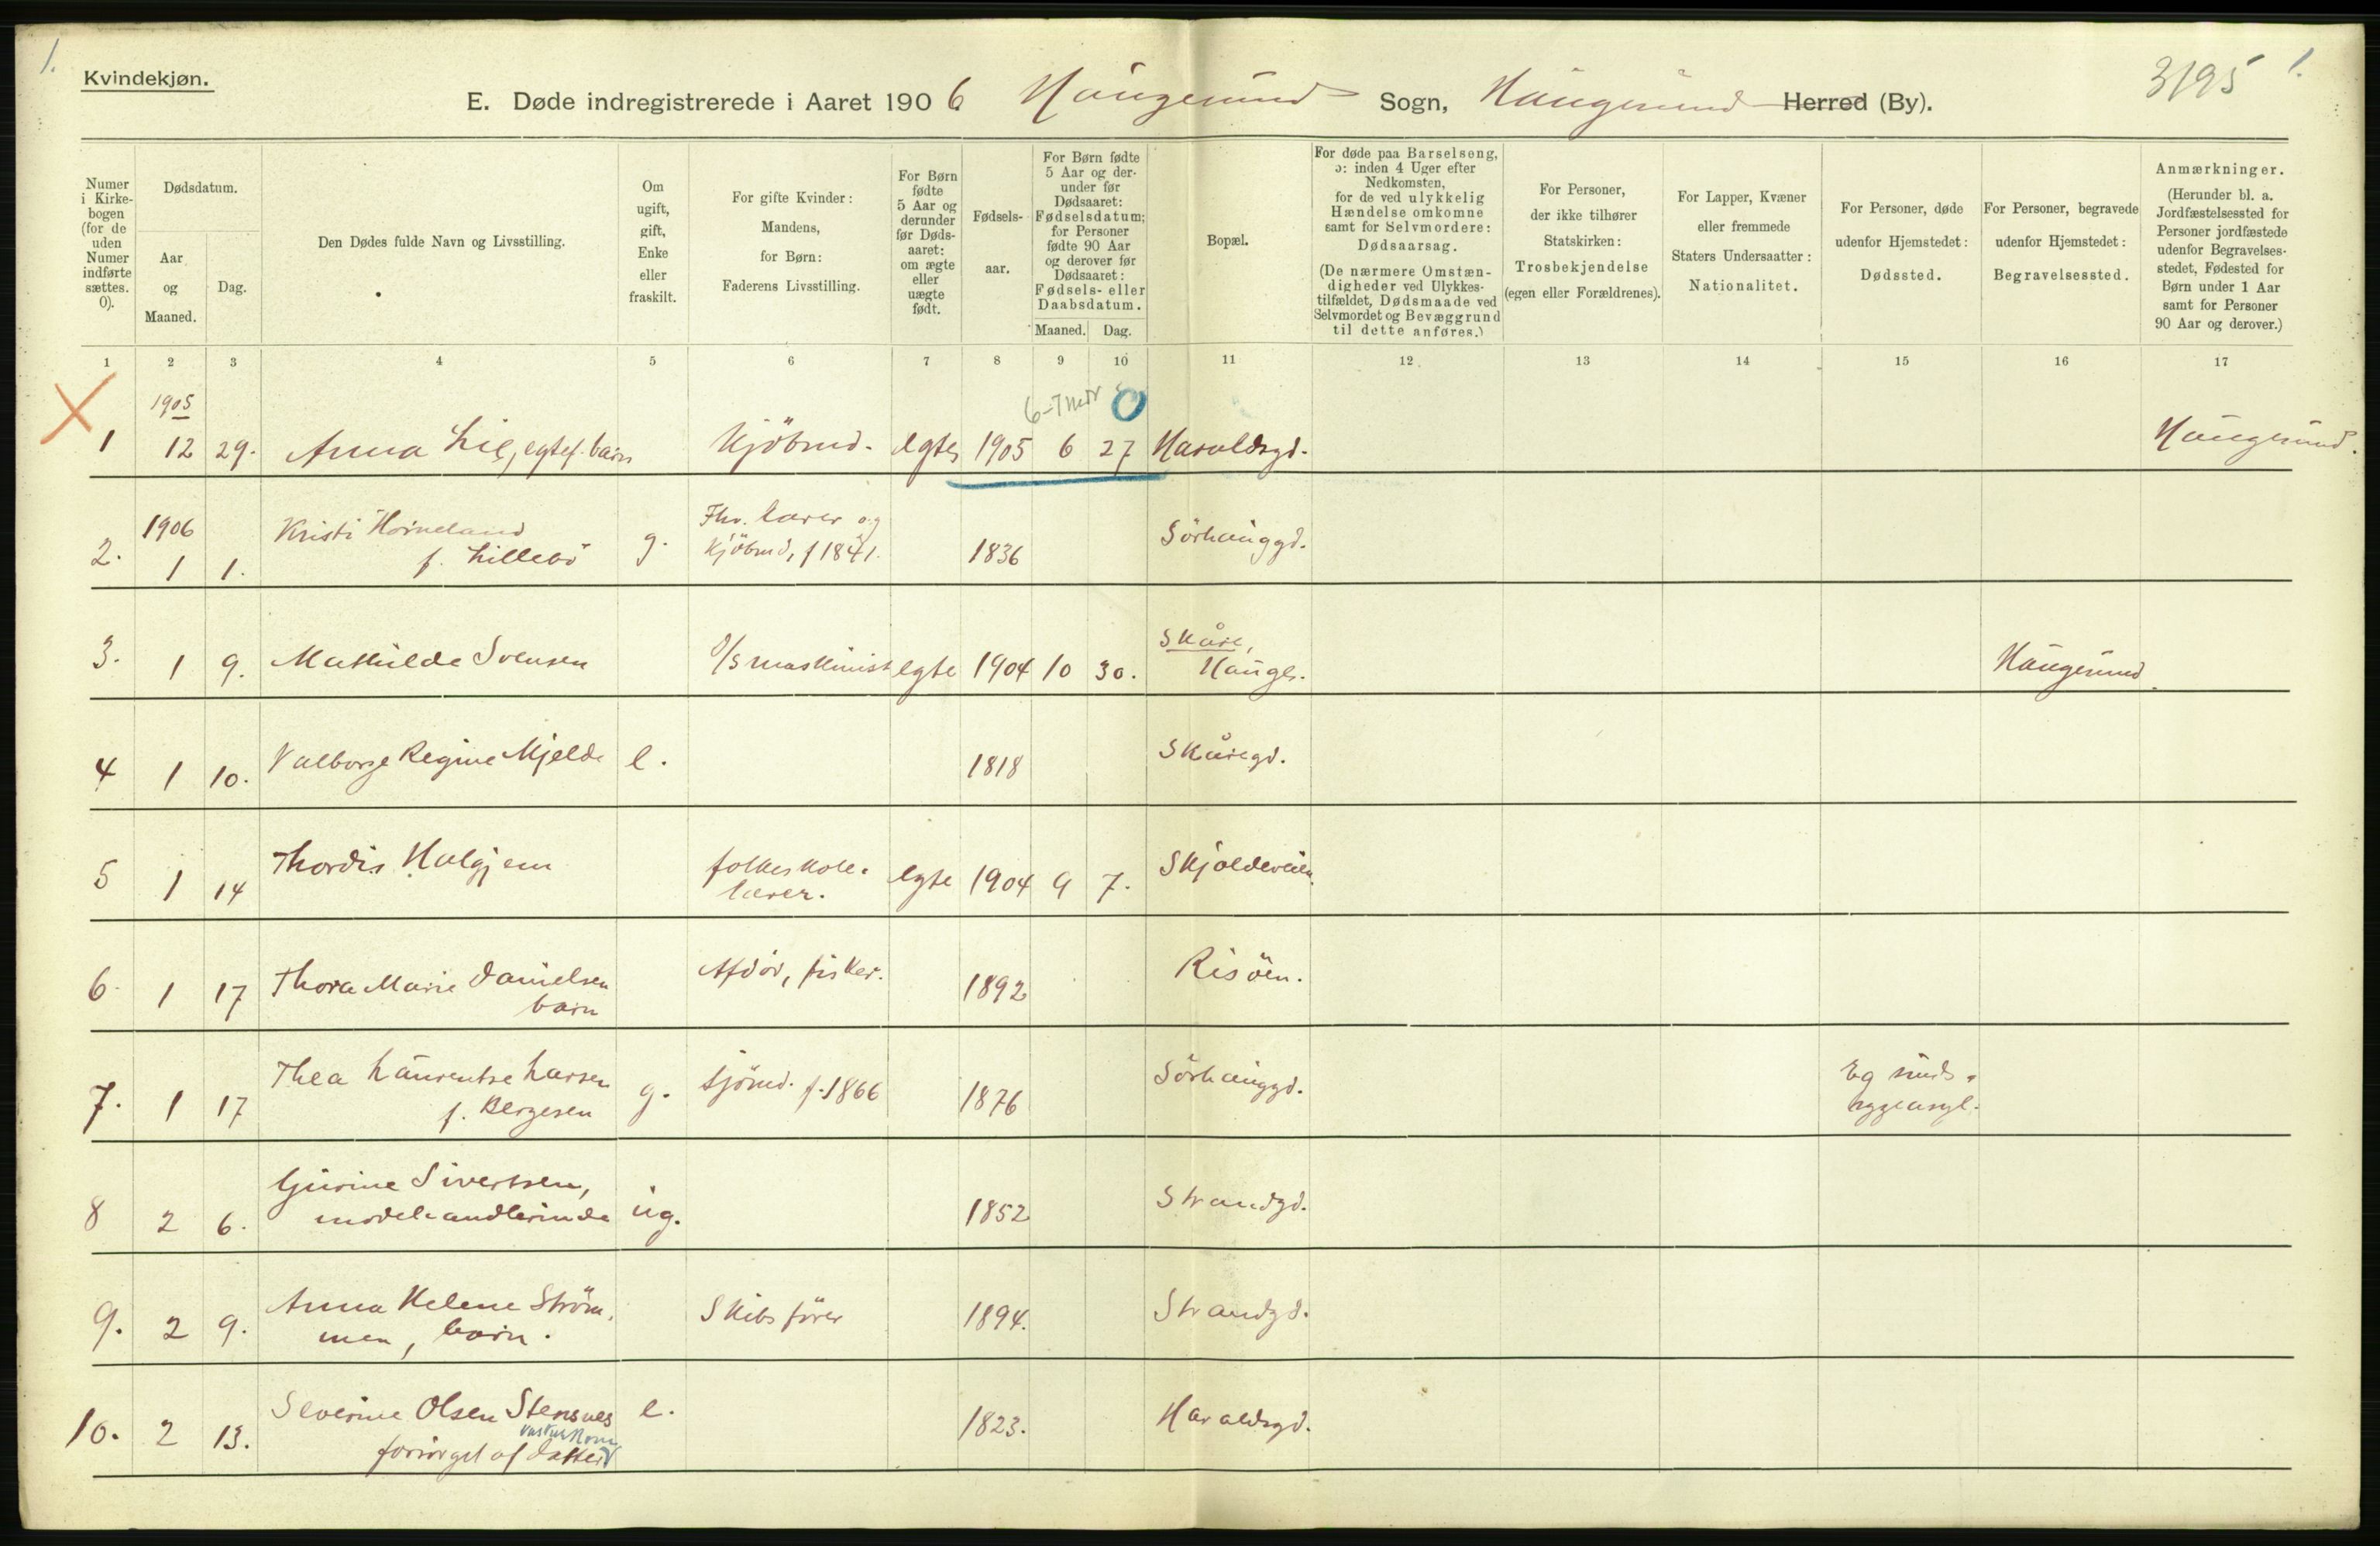 1.
Kvindekjøn.
E. Døde indregistrerede i Aaret 1906 Haugesund Sogn, Haugesund Herred (By).
3195 1.
Numer i Kirkebogen (for de uden Numer indførte sættes. 0).
Dødsdatum.
Aar og Maaned.
Dag.
Den Dødes fulde Navn og Livsstilling.
Om ugift, gift, Enke eller fraskilt.
For gifte Kvinder: Mandens, for Børn: Faderens Livsstilling.
For Børn fødte 5 Aar og derunder før Dødsaaret: om ægte eller uægte født.
Fødselsaar.
For Børn fødte 5 Aar og derunder før Dødsaaret: Fødselsdatum; for Personer fødte 90 Aar og derover før Dødsaaret: Fødsels- eller Daabsdatum.
Maaned. Dag.
Bopæl.
For døde paa Barselseng, ɔ: inden 4 Uger efter Nedkomsten, for de ved ulykkelig Hændelse omkomne samt for Selvmordere: Dødsaarsag.
(De nærmere Omstændigheder ved Ulykkestilfældet, Dødsmaade ved Selvmordet og Bevæggrund til dette anføres.)
For Personer, der ikke tilhører Statskirken: Trosbekjendelse (egen eller Forældrenes).
For Lapper, Kvæner eller fremmede Staters Undersaatter: Nationalitet.
For Personer, døde udenfor Hjemstedet: Dødssted.
For Personer, begravede udenfor Hjemstedet: Begravelsessted.
Anmærkninger.
(Herunder bl. a. Jordfæstelsessted for Personer jordfæstede udenfor Begravelsesstedet, Fødested for Børn under 1 Aar samt for Personer 90 Aar og derover.)
1 2 3 4 5 6 7 8 9 10 11 12 13 14 15 16 17
1905 6-7 mdr 0
1 12 29. Anna Lie, egtef. barn Kjöbmd. egte 1905 6 27 Haraldsgd. Haugesund.
1906 Kristi Horneland Fhv. lærer og Sörhauggd.
2. 1 1. f. Lillebö g. kjöbmd, f 1841. 1836
3. 1 9. Mathilde Svensen D/S maskinist egte 1904 10 30. Skåre, Hauges. Haugesund.
4 1 10. Valborge Regine Mjelde e. 1818 Skåregd.
5 1 14 Thordis Helgjem folkeskole- lærer. egte 1904 9 7. Skjoldeveien.
6. 1 17 Thora Marie Danielsen Afdöd, fisker. 1892 Risöen.
barn
7. 1 17 Thea Laurentse Larsen g. sjömd. f. 1866 1876 Sörhauggd. Eg sinds-
f. Bergesen sygeasyl.
8 2 6. Gurine Sivertsen, ug. 1852 Strandgd.
modehandlerinde
9. 2 9. Anna Helene Ström- Skibsförer 1894. Strandgd.
men, barn.
10. 2 13. Severine Olsen Stensnes e. 1823. Haraldsgd.
forsörget af datter